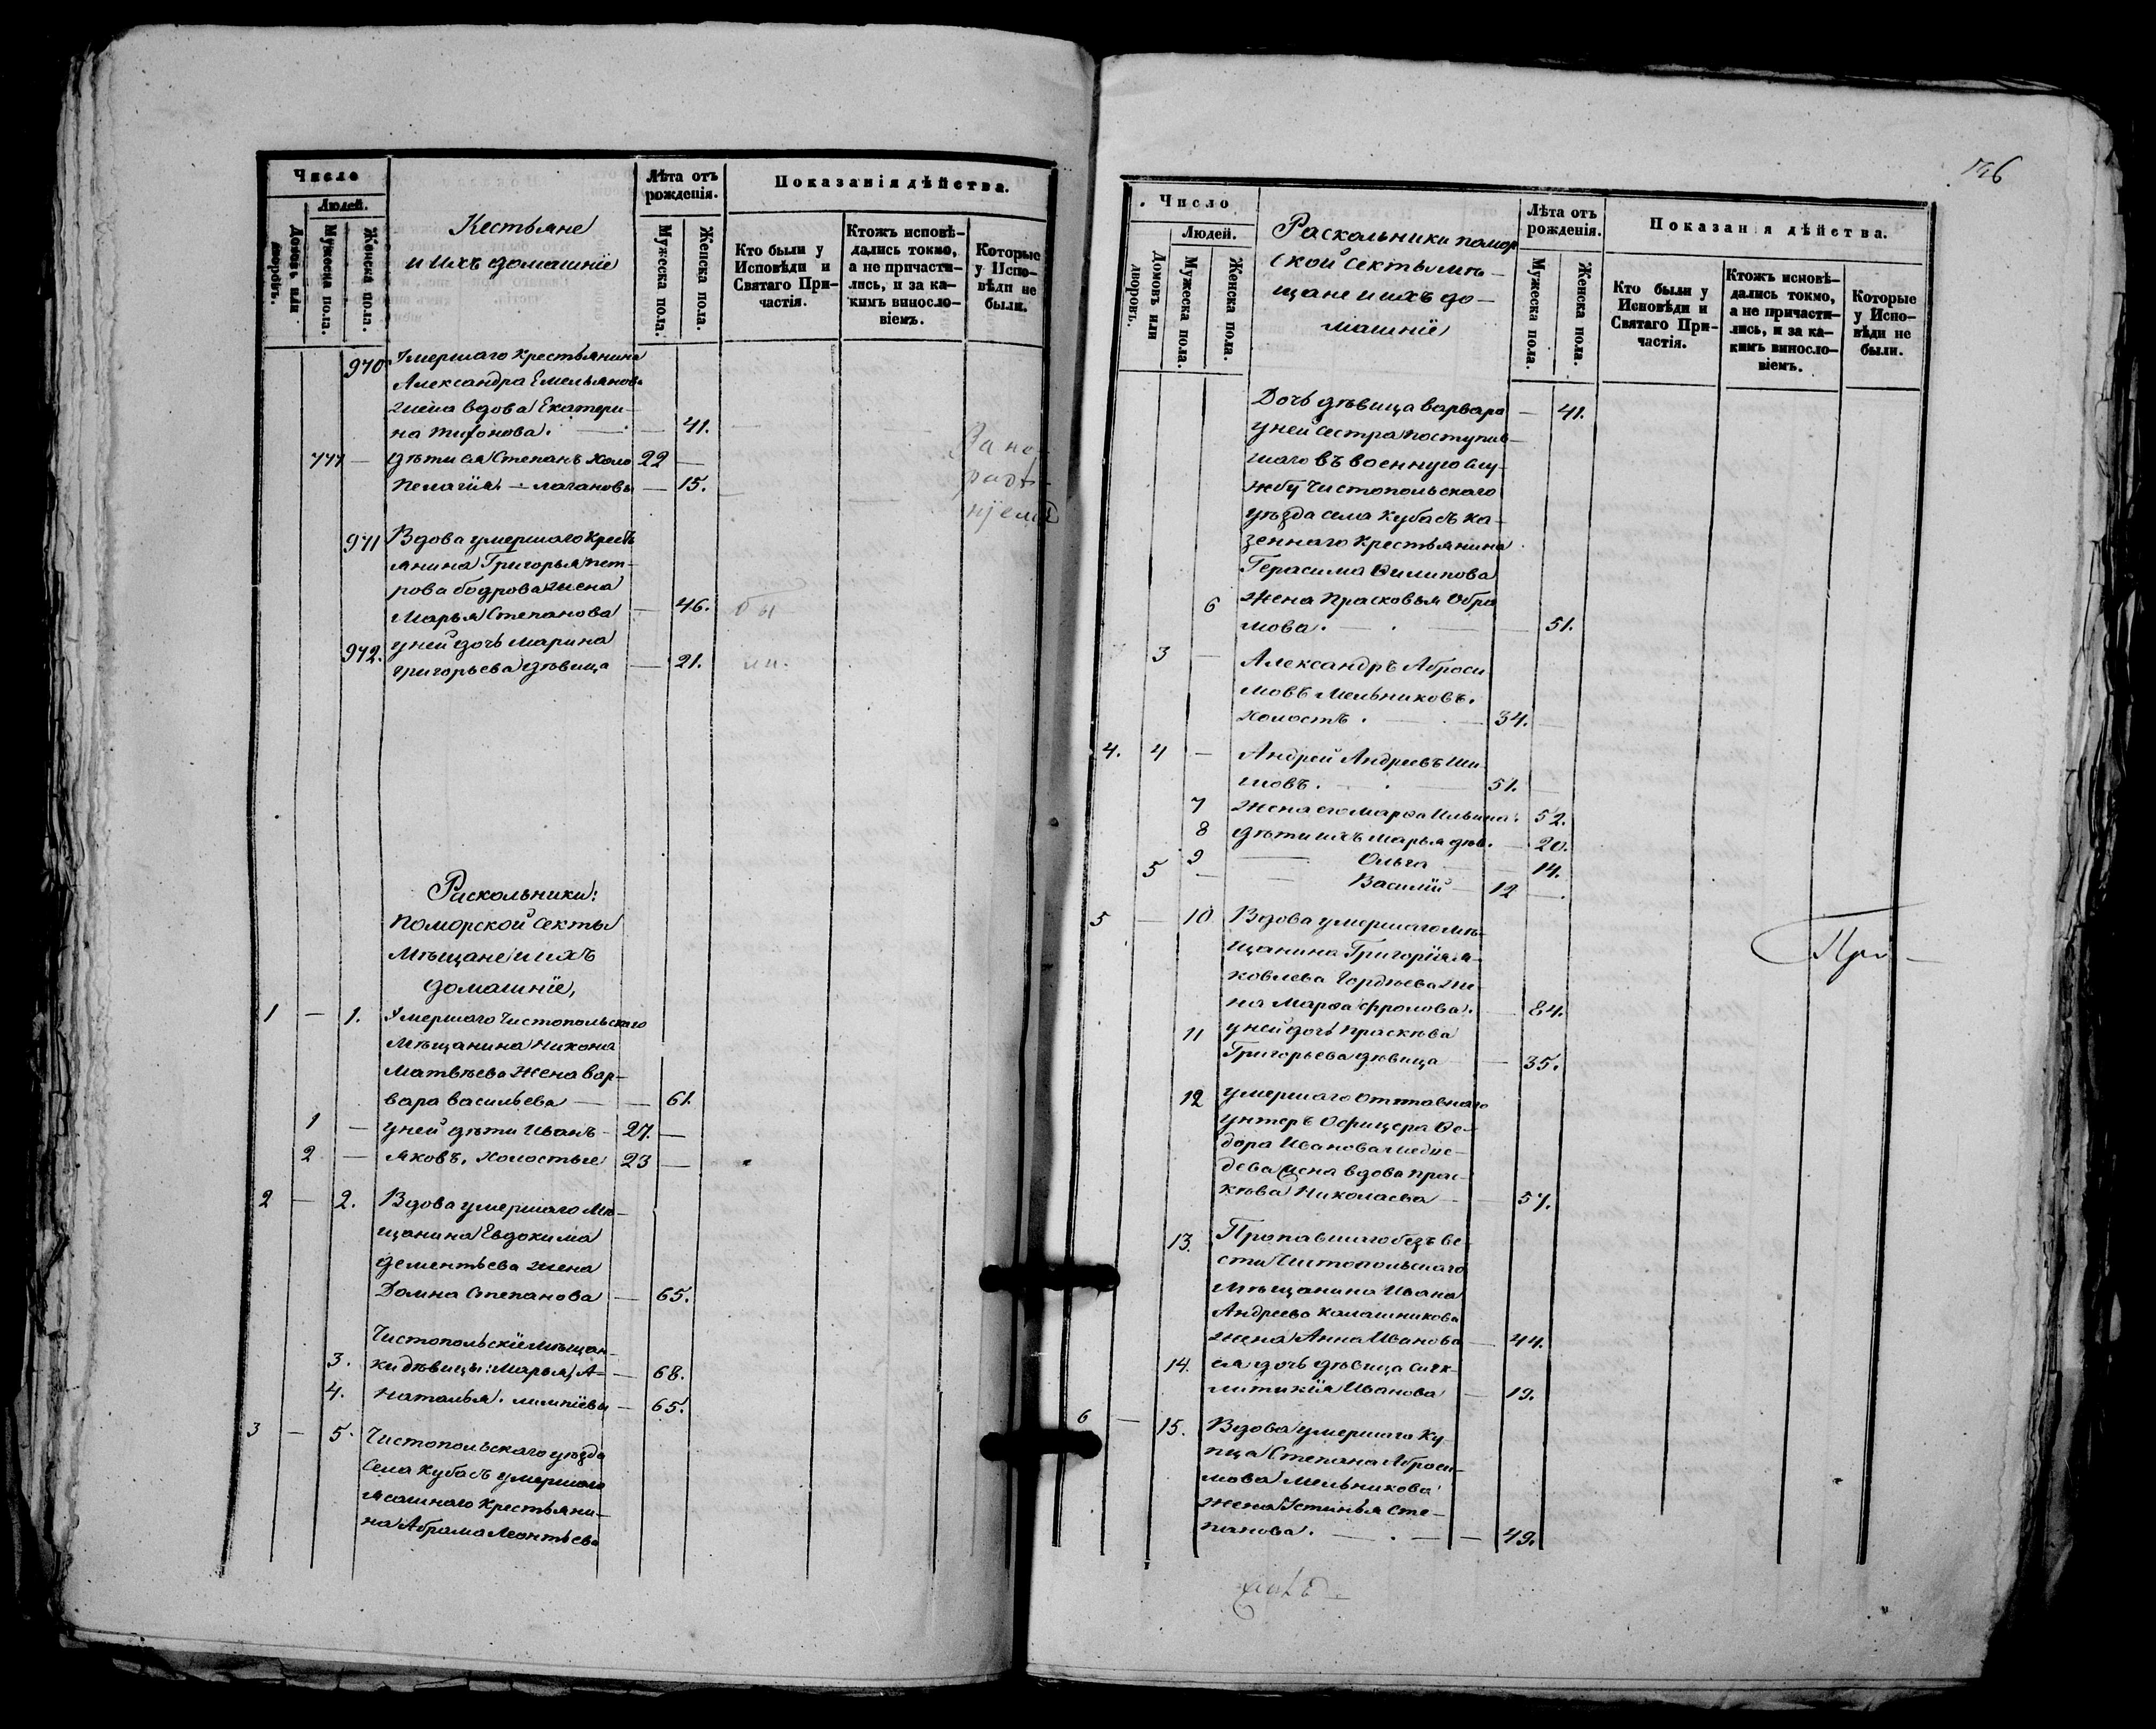 Число
Людей.
Домовъ или дворовъ.
Мужеска пола.
Женска пола.
Кестьяне
и ихъ домашніе
Лѣта отъ рожденія.
Мужеска пола.
Женска пола.
Показанія дѣйства.
Кто были у Исповѣди и Святаго Причастія.
Ктожъ исповѣдались токмо, а не причастились, и за какимъ винословіемъ.
Которые у Исповѣди не были.
970 Умершаго крестьянина
Александра Емельянова
жена вдова Екатери-
на Тихонова. — 41.
777 — дѣти ея Степанъ холо 22 —
Пелагія. — — 15.
971 Вдова умершаго кресть
янина Григорья Пет-
рова Бодрова жена
Марья Степанова — 46. бы
972. у ней дочь Марина
Григорьева дѣвица — 21. ли.
Раскольники:
Поморской секты
Мѣщане и ихъ
домашніе,
1 — 1. Умершаго Чистопольскаго
Мѣщанина Никона
Матвѣева жена Вар-
вара Васильева — — 61.
1 — у ней дѣти Иванъ — 27. —
2 — Яковъ. холостые 23 —
2 — 2. Вдова умершаго Мѣ-
щанина Евдокима
Дементьева жена
Домна Степанова — 65.
Чистопольскіе мѣщан-
3. ки дѣвицы: Марья, А- — 68.
4. Наталья. лимпіевы — 65.
3 — 5. Чистопольскаго уѣзда
села Кубасъ умершаго
ясашнаго крестьяни-
на Абрама Леонтьева
Число
Людей.
Домовъ или дворовъ.
Мужеска пола.
Женска пола.
Раскольники помор
ской секты мѣ-
щане и ихъ до-
машніе
Лѣта отъ рожденія.
Мужеска пола.
Женска пола.
Показанія дѣйства.
Кто были у Исповѣди и Святаго Причастія.
Ктожъ исповѣдались токмо, а не причастились, и за какимъ винословіемъ.
Которые у Исповѣди не были.
Дочь дѣвица Варвара — 41.
у ней сестра поступив-
шаго въ военную слу-
жбу Чистопольскаго
уѣзда села Кубасъ ка-
зеннаго крестьянина
Герасима Филипова
6 жена Прасковья Обра
мова. — 51.
3 — Александръ Аброси
мовъ Мельниковъ.
холостъ. — 34. —
4. 4 — Андрей Андреевъ Ши
шовъ. — 51. —
7 жена его Марфа Ильина. 52.
8 дѣти ихъ Марья дѣв. — 20.
9 — Ольга — 14.
5 — — Василій — 12 —
5 — 10 Вдова умершаго мѣ-
щанина Григорія Я-
ковлева Гордѣева же-
на Марфа Фролова. — 84.
11 у ней дочь Праскѣва
Григорьева дѣвица — 35.
12 умершаго отставнаго
унтеръ Офицера Фе-
дора Иванова
жена вдова Прас-
кѣва Николаева — 57.
13. Пропавшаго безъ ве-
сти Чистопольскаго
мѣщанина Ивана
Андреева Калашникова
жена Анна Иванова — 44.
14. ея дочь дѣвица Сик-
литикія Иванова — 19.
6 — 15. Вдова умершаго Ку-
пца Степана Аброси-
мова Мельникова
жена Устинья Сте-
панова. — 49.